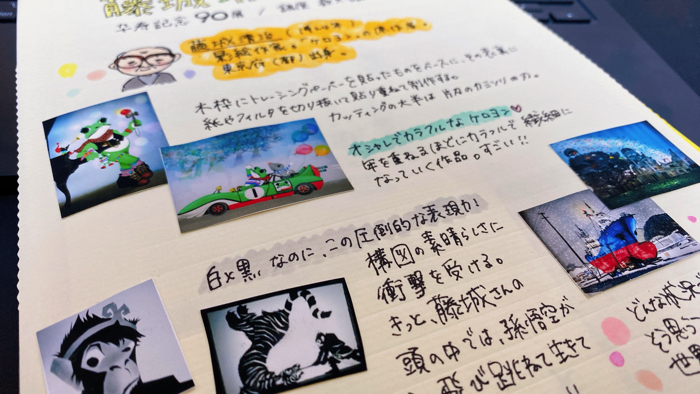 藤城
卒寿記念90展 / 銀座
藤城清治
影絵作家。"ケロヨン"の原作者。
東京府(都)出身。
木枠にトレーシングペーパーを貼ったものをベースに、その裏に
紙やフィルタを切り抜いて貼り重ねて制作する。
カッティングの水準は 片刃のカミソリの刃。
オシャレでカラフルな ケロヨン
年を重ねるほどにカラフルで 繊細に
なっていく作品。すごい!!
白×黒 なのに、この圧倒的な表現力!
構図の素晴らしさに
衝撃を受ける。
きっと、藤城さんの
頭の中では、孫悟空が
飛び跳ねて生きて
どんな状況
そう思う
世界